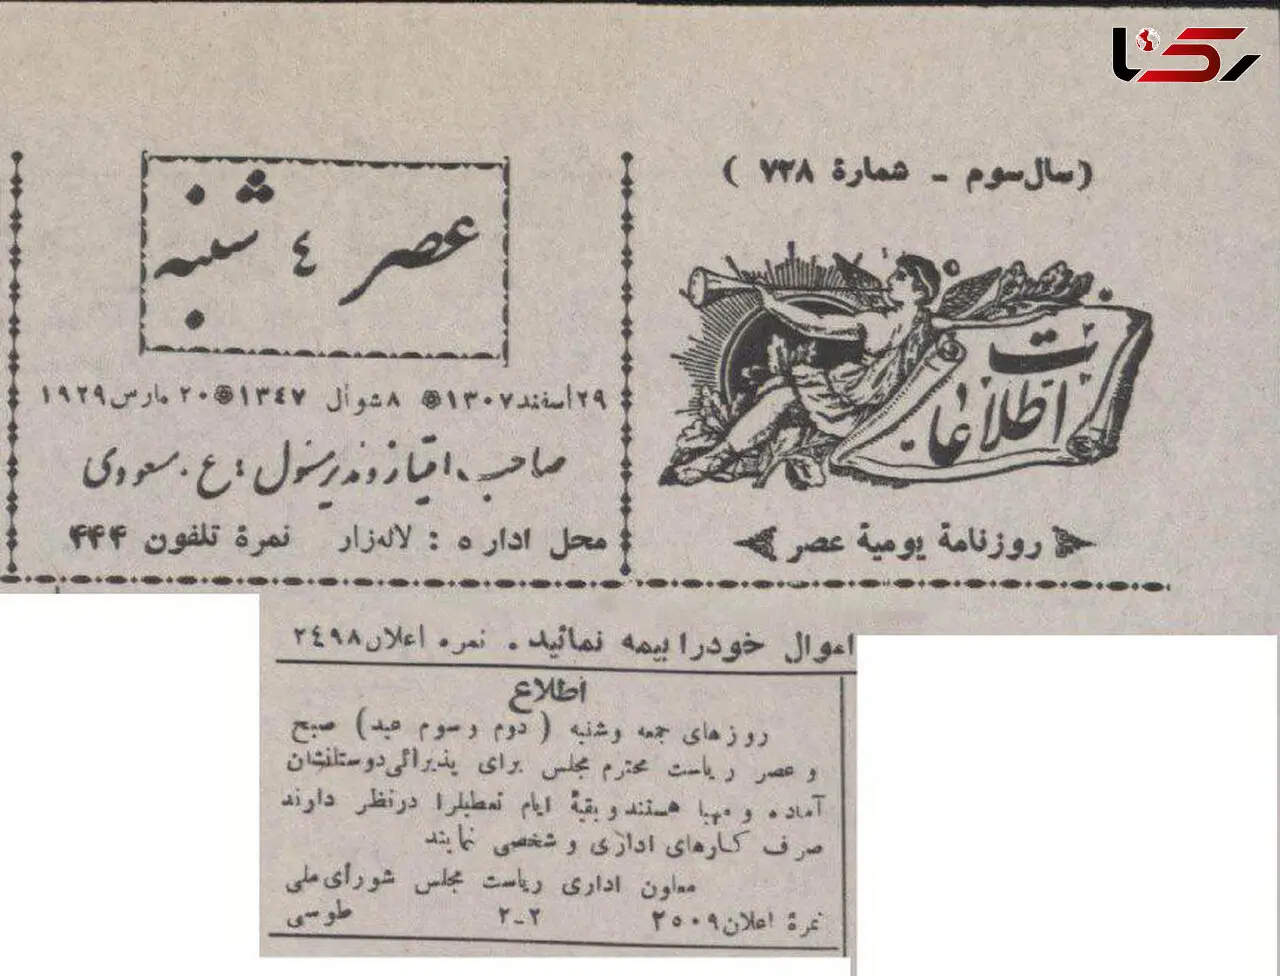 رکنا
(سال سوم - شمارهٔ ۷۳۸ )
اطلاعات
روزنامهٔ یومیهٔ عصر
عصر ٤ شنبه
۲۹ اسفند ۱۳۰۷ ۸ شوال ۱۳٤۷ ۲۰ مارس ۱۹۲۹
صاحب امتیاز و مدیر مسئول : ع . مسعودی
محل اداره : لاله‌زار نمرهٔ تلفون ۴۴۴
اموال خود را بیمه نمائید . نمره اعلان ۲٤۹۸
اطلاع
روزهای جمعه وشنبه ( دوم و سوم عید ) صبح
و عصر ریاست محترم مجلس برای پذیرائی دوستانشان
آماده و مهیا هستند و بقیهٔ ایام تعطیلرا درنظر دارند
صرف کارهای اداری و شخصی نمایند
معاون اداری ریاست مجلس شورای ملی
نمرهٔ اعلان ۲۵۰۹ ۲-۲ طوسی